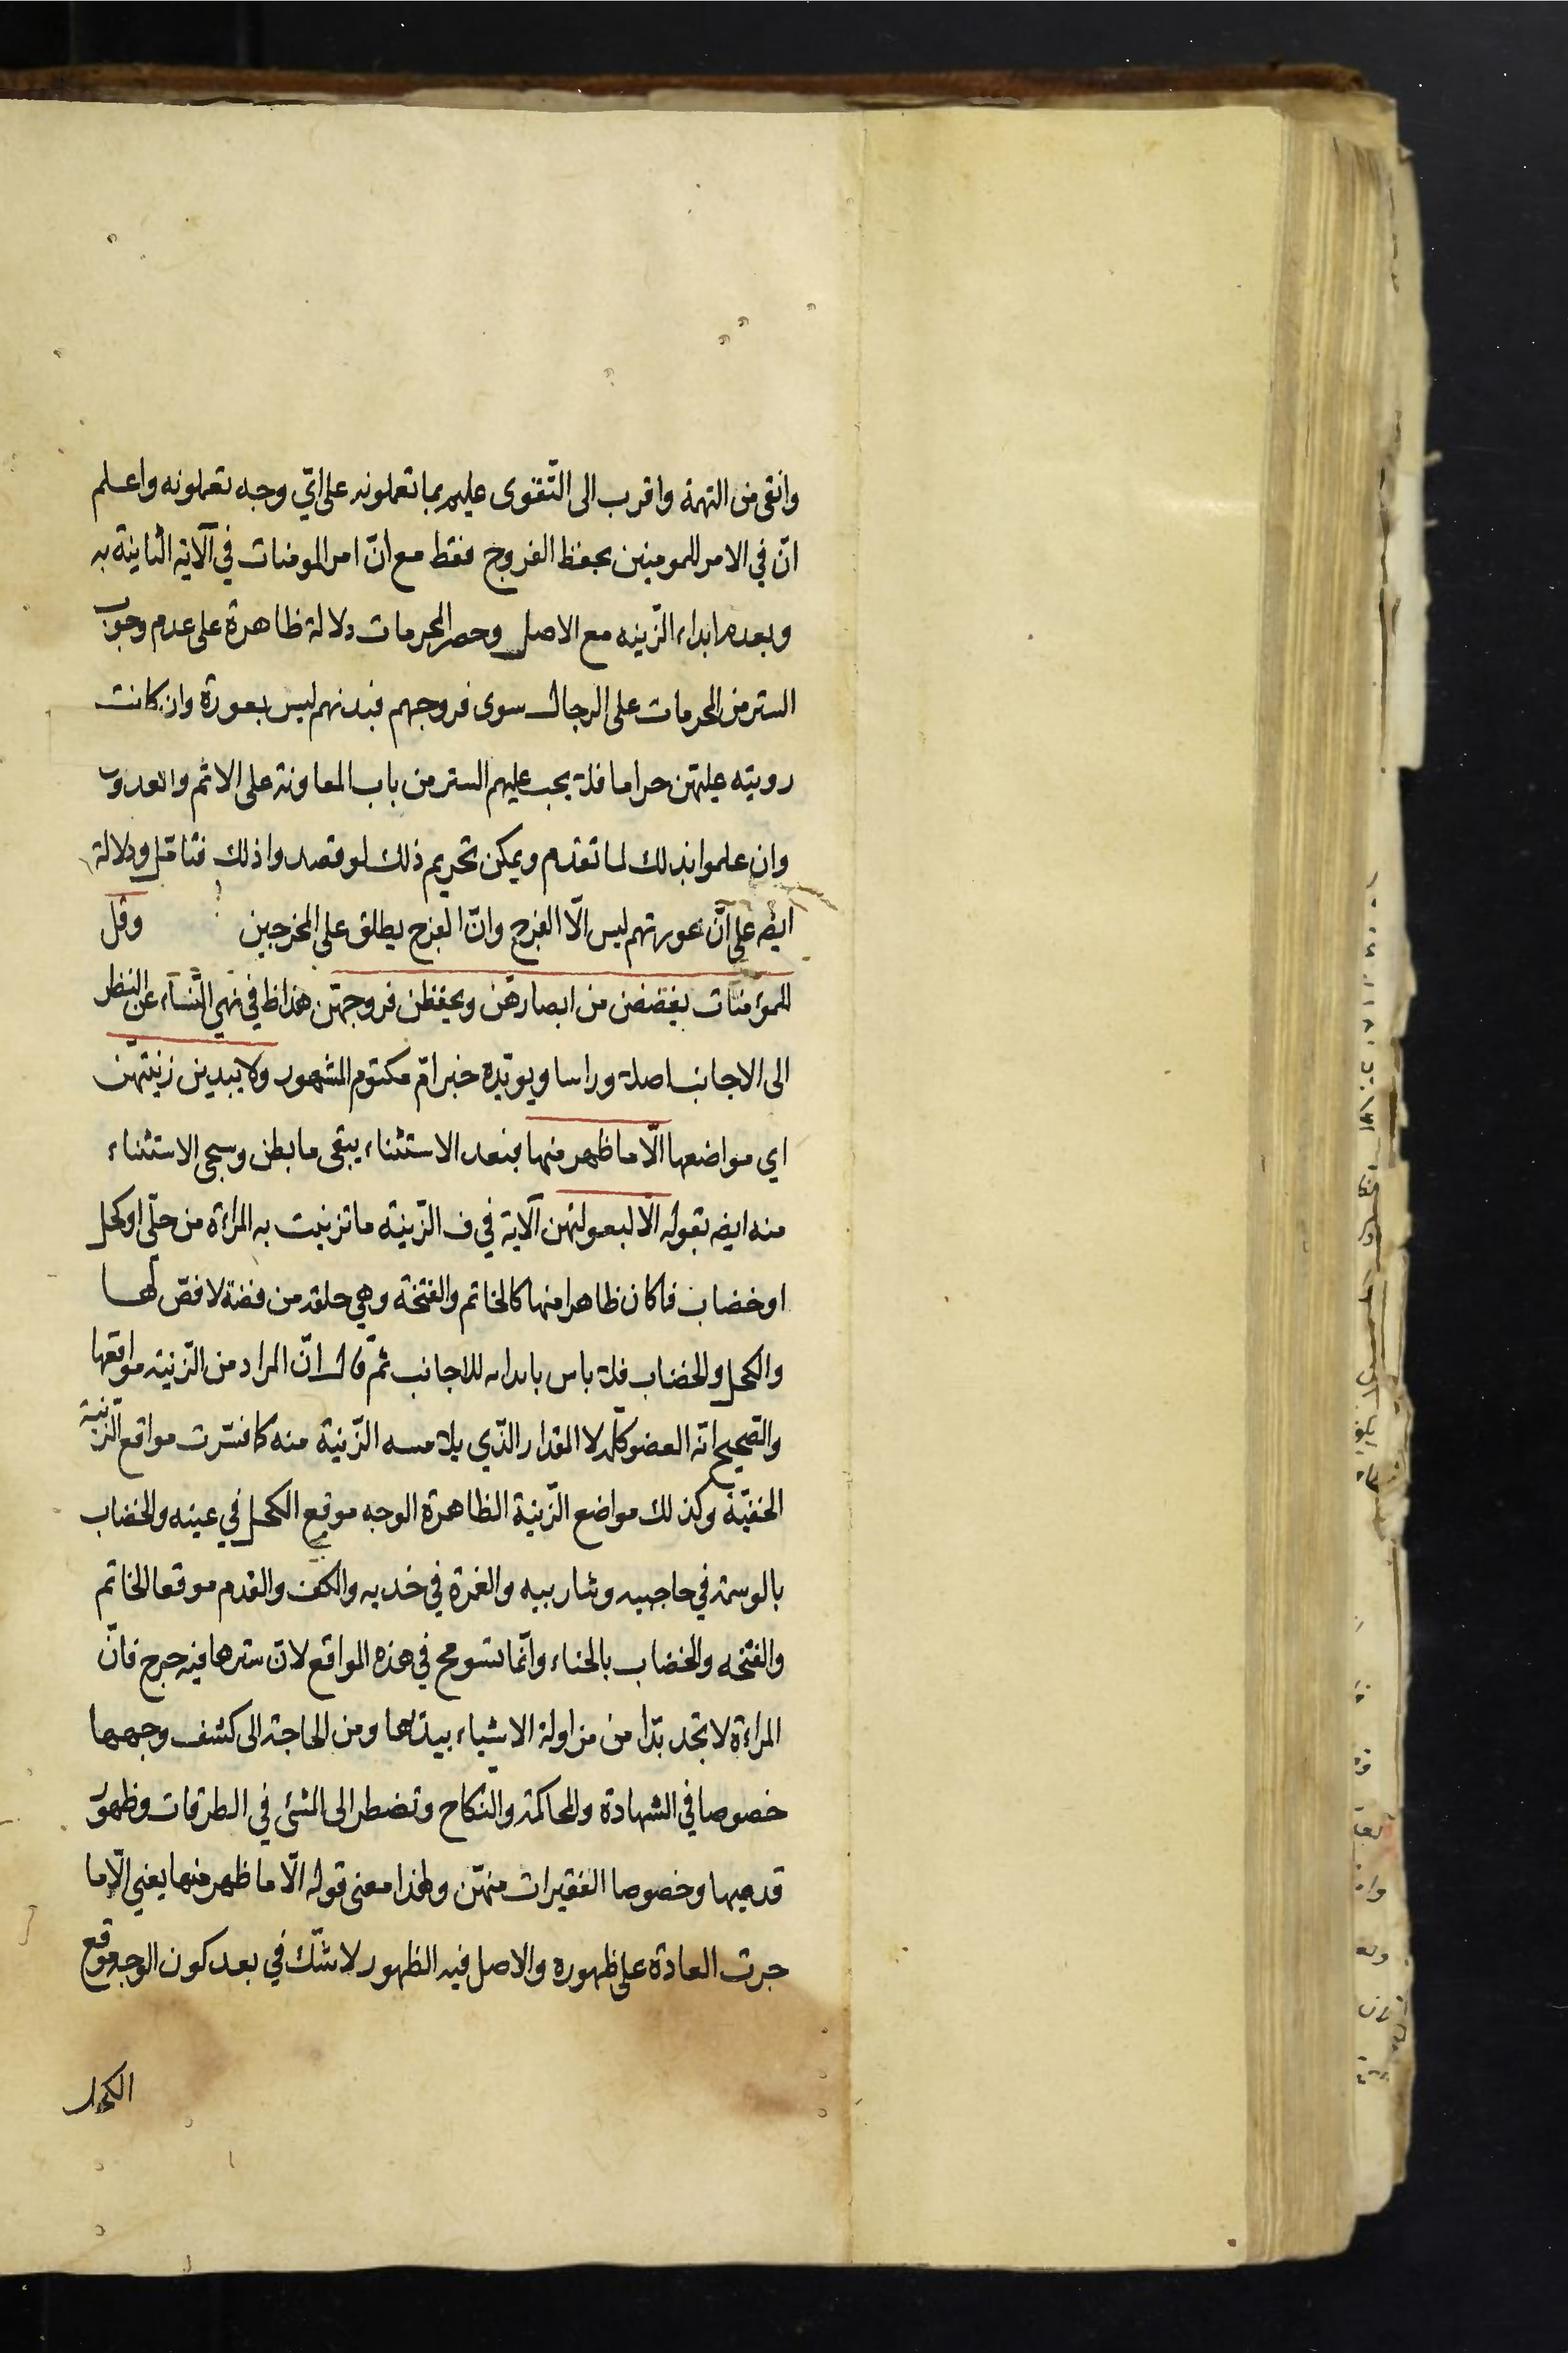 وانقى من التهمة واقرب الى التّقوى عليم بما تعملونه على اىّ وجه تعملونه واعلم
انّ في الامر للمومنين بحفظ الفروج فقط مع انّ امر المومنات في آلاية الثانية به
وبعدم ابداء الزّينه مع الاصل وحصر المحرمات دلالة ظاهرة على عدم وجوب
الستر من المحرمات على الرجال سوى فروجهم فبدنهم ليس بعورة وان كانت
رويته عليهن حراما فلا يجب عليهم الستر من باب المعاونة على الاثم والعدوان
وان علموا بذلك لما تقدم ويمكن تحريم ذلك لو قصدوا ذلك فتامّل ودلالة
ايضه على انّ عورتهم ليس الّا الفرج وانّ الفرج يطلق على المخرجين وقل
للموءمنات يغضضن من ابصارهنّ ويحفظن فروجهنّ هذا ظ في نهي النّساء عن النظر
الى الاجانب اصلا وراسا ويويّده خبر امّ مكتوم المشهور ولا يبدين زينتهنّ
اي مواضعها الّا ما ظهر منها فبعد الاستثناء يبقى ما بطن وسيجى الاستثناء
منه ايضه بقوله الّا لبعولتهن آلاية في ف الزّينة ما تزينت به المراءة من حلّي او كحل
او خضاب فما كان ظاهرا منها كالخاتم والفتخة وهي حلقة من فضة لا فصّ لها
والكحل والخضاب فلا باس بابدائه للاجانب ثمّ قال انّ المراد من الزّينة مواقعها
والصّحيح انّه العضو كلّه لا المقدار الذّي يلامسه الزّينة منه كما فسّرت مواقع الزّينة
الخفيّة وكذلك مواضع الزّينة الظاهرة الوجه موقع الكحل في عينه والخضاب
بالوسمة في حاجبيه وشاربيه والغمرة في خديه والكف والقدم موقعا الخاتم
والفتخه والخضاب بالحناء وانّما تسومح في هذه المواقع لانّ سترها فيه حرج فانّ
المراءة لا تجد بدّا من مزاولة الاشياء بيدها ومن الحاجة الى كشف وجهها
خصوصا في الشهادة والمحاكمة والنكاح وتضطر الى المشى في الطرقات وظهور
قدميها وخصوصا الفقيرات منهنّ وهذا معنى قوله الّا ما ظهر منها يعني الّا ما
جرت العادة على ظهوره والاصل فيه الظهور لا شّك في بعد كون الوجه موقع
الكحل